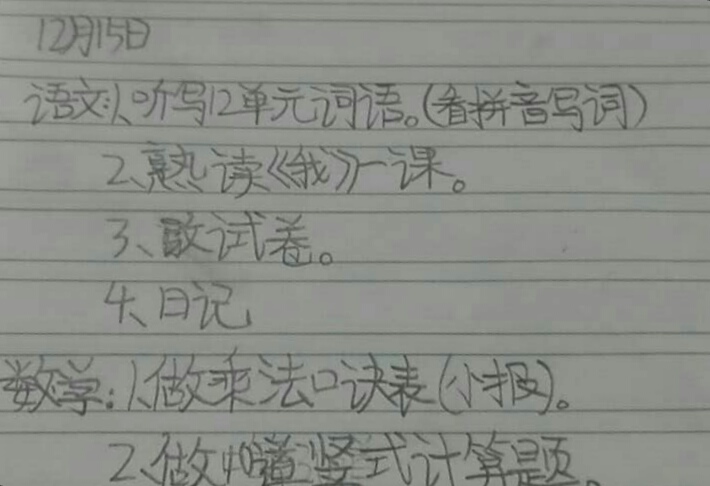 12月15日
语文:1、听写12单元词语。(看拼音写词)
2、熟读《我》一课。
3、改试卷。
4、日记
数学:1、做乘法口诀表(小报)。
2、做40道竖式计算题。